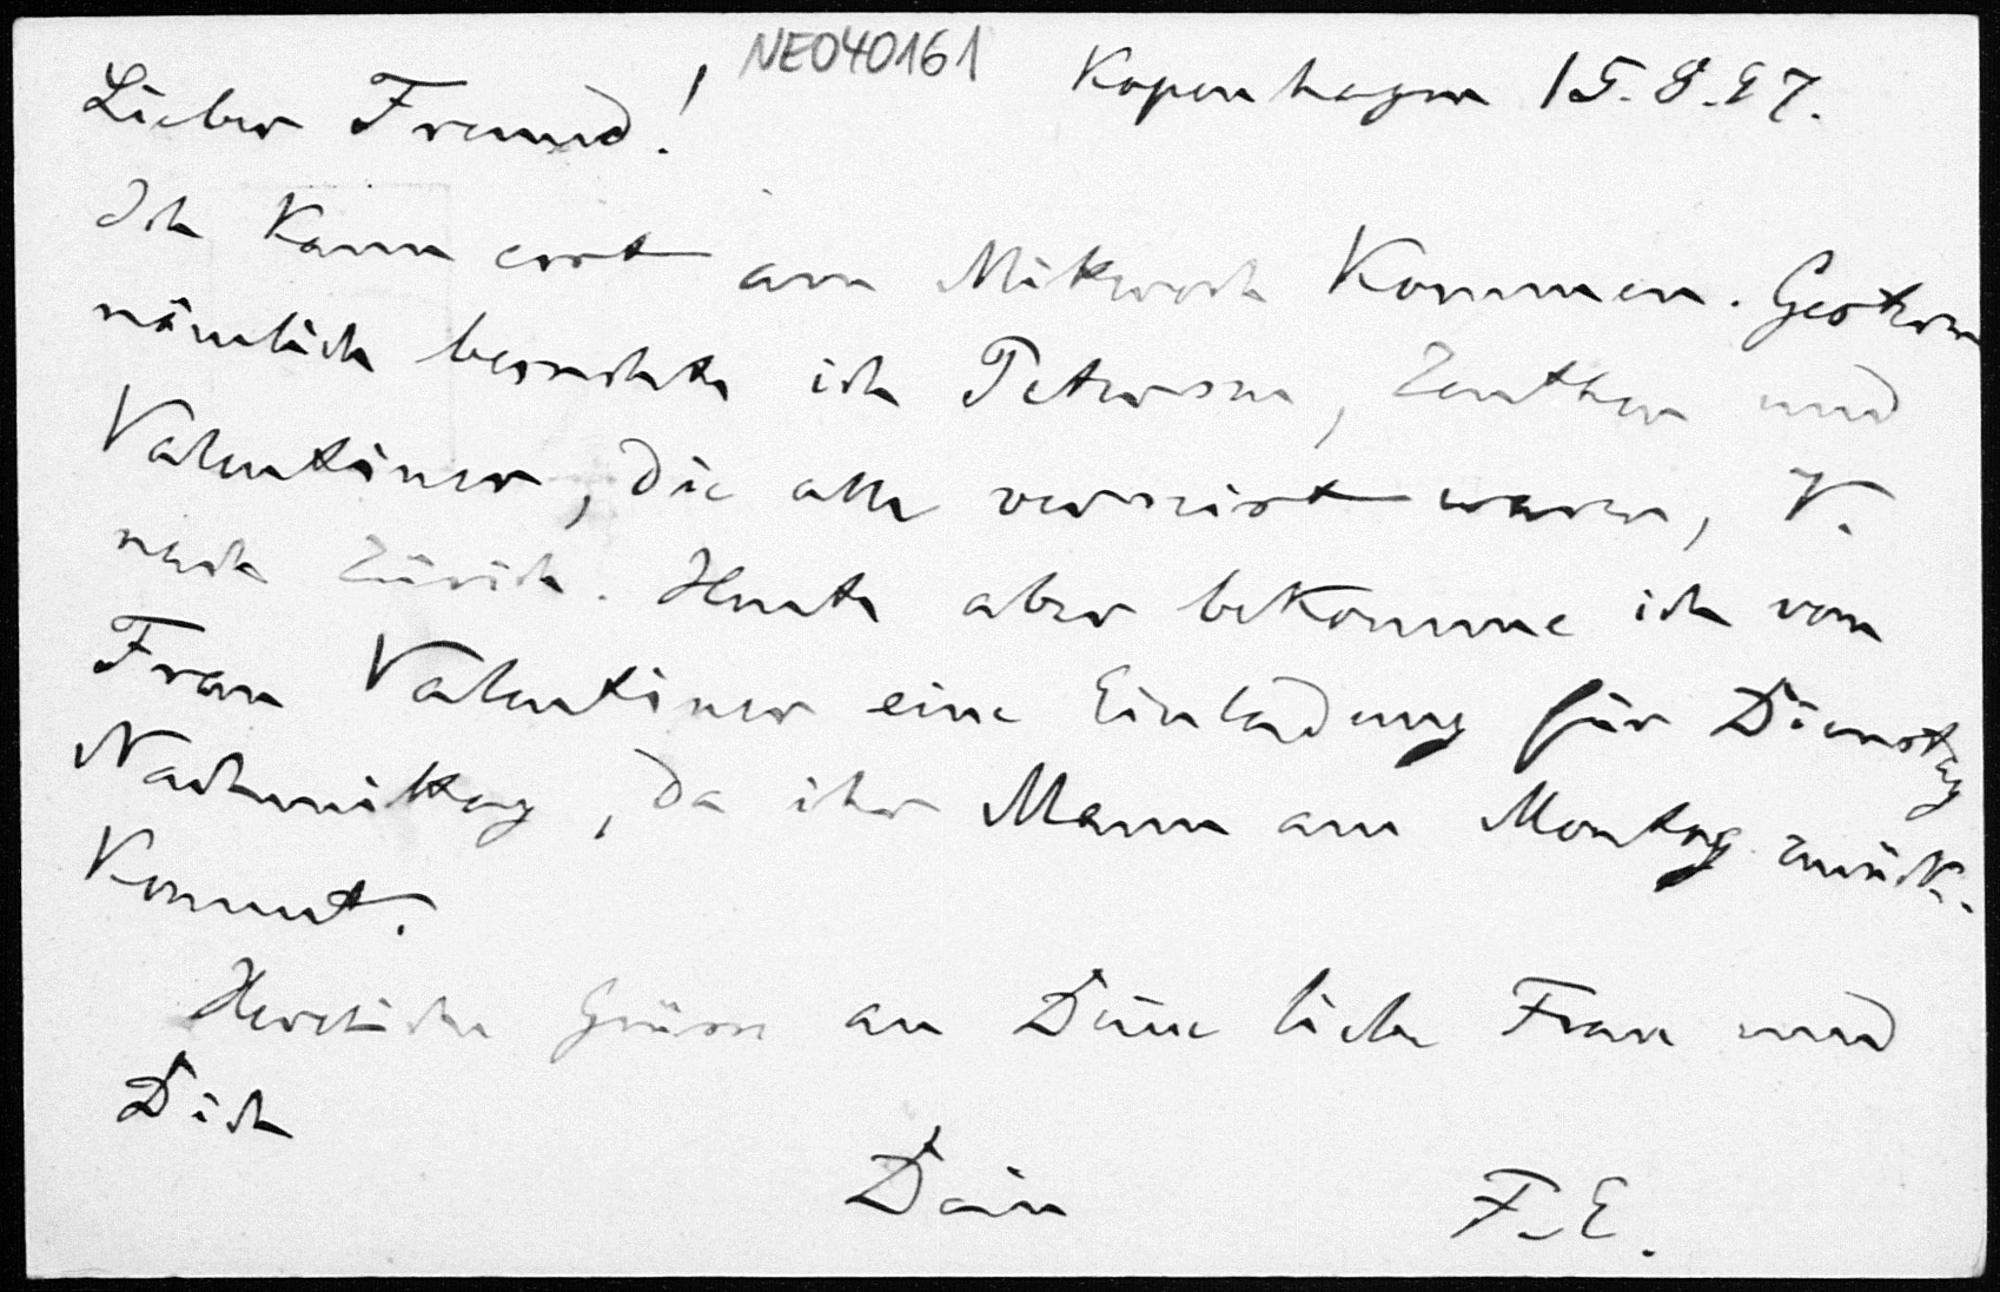 NEO40161
Kopenhagen 15.8.97.
Lieber Freund!
Ich kann erst am Mittwoch kommen. Gestern
nämlich besuchte ich Petersen, Zeuthen und
Valentiner, die alle verreist waren, V.
nach Zürich. Heute aber bekomme ich von
Frau Valentiner eine Einladung für Dienstag
Nachmittag, da ihr Mann am Montag zurück-
kommt.
Herzliche Grüsse an Deine liebe Frau und
Dich
Dein F. E.